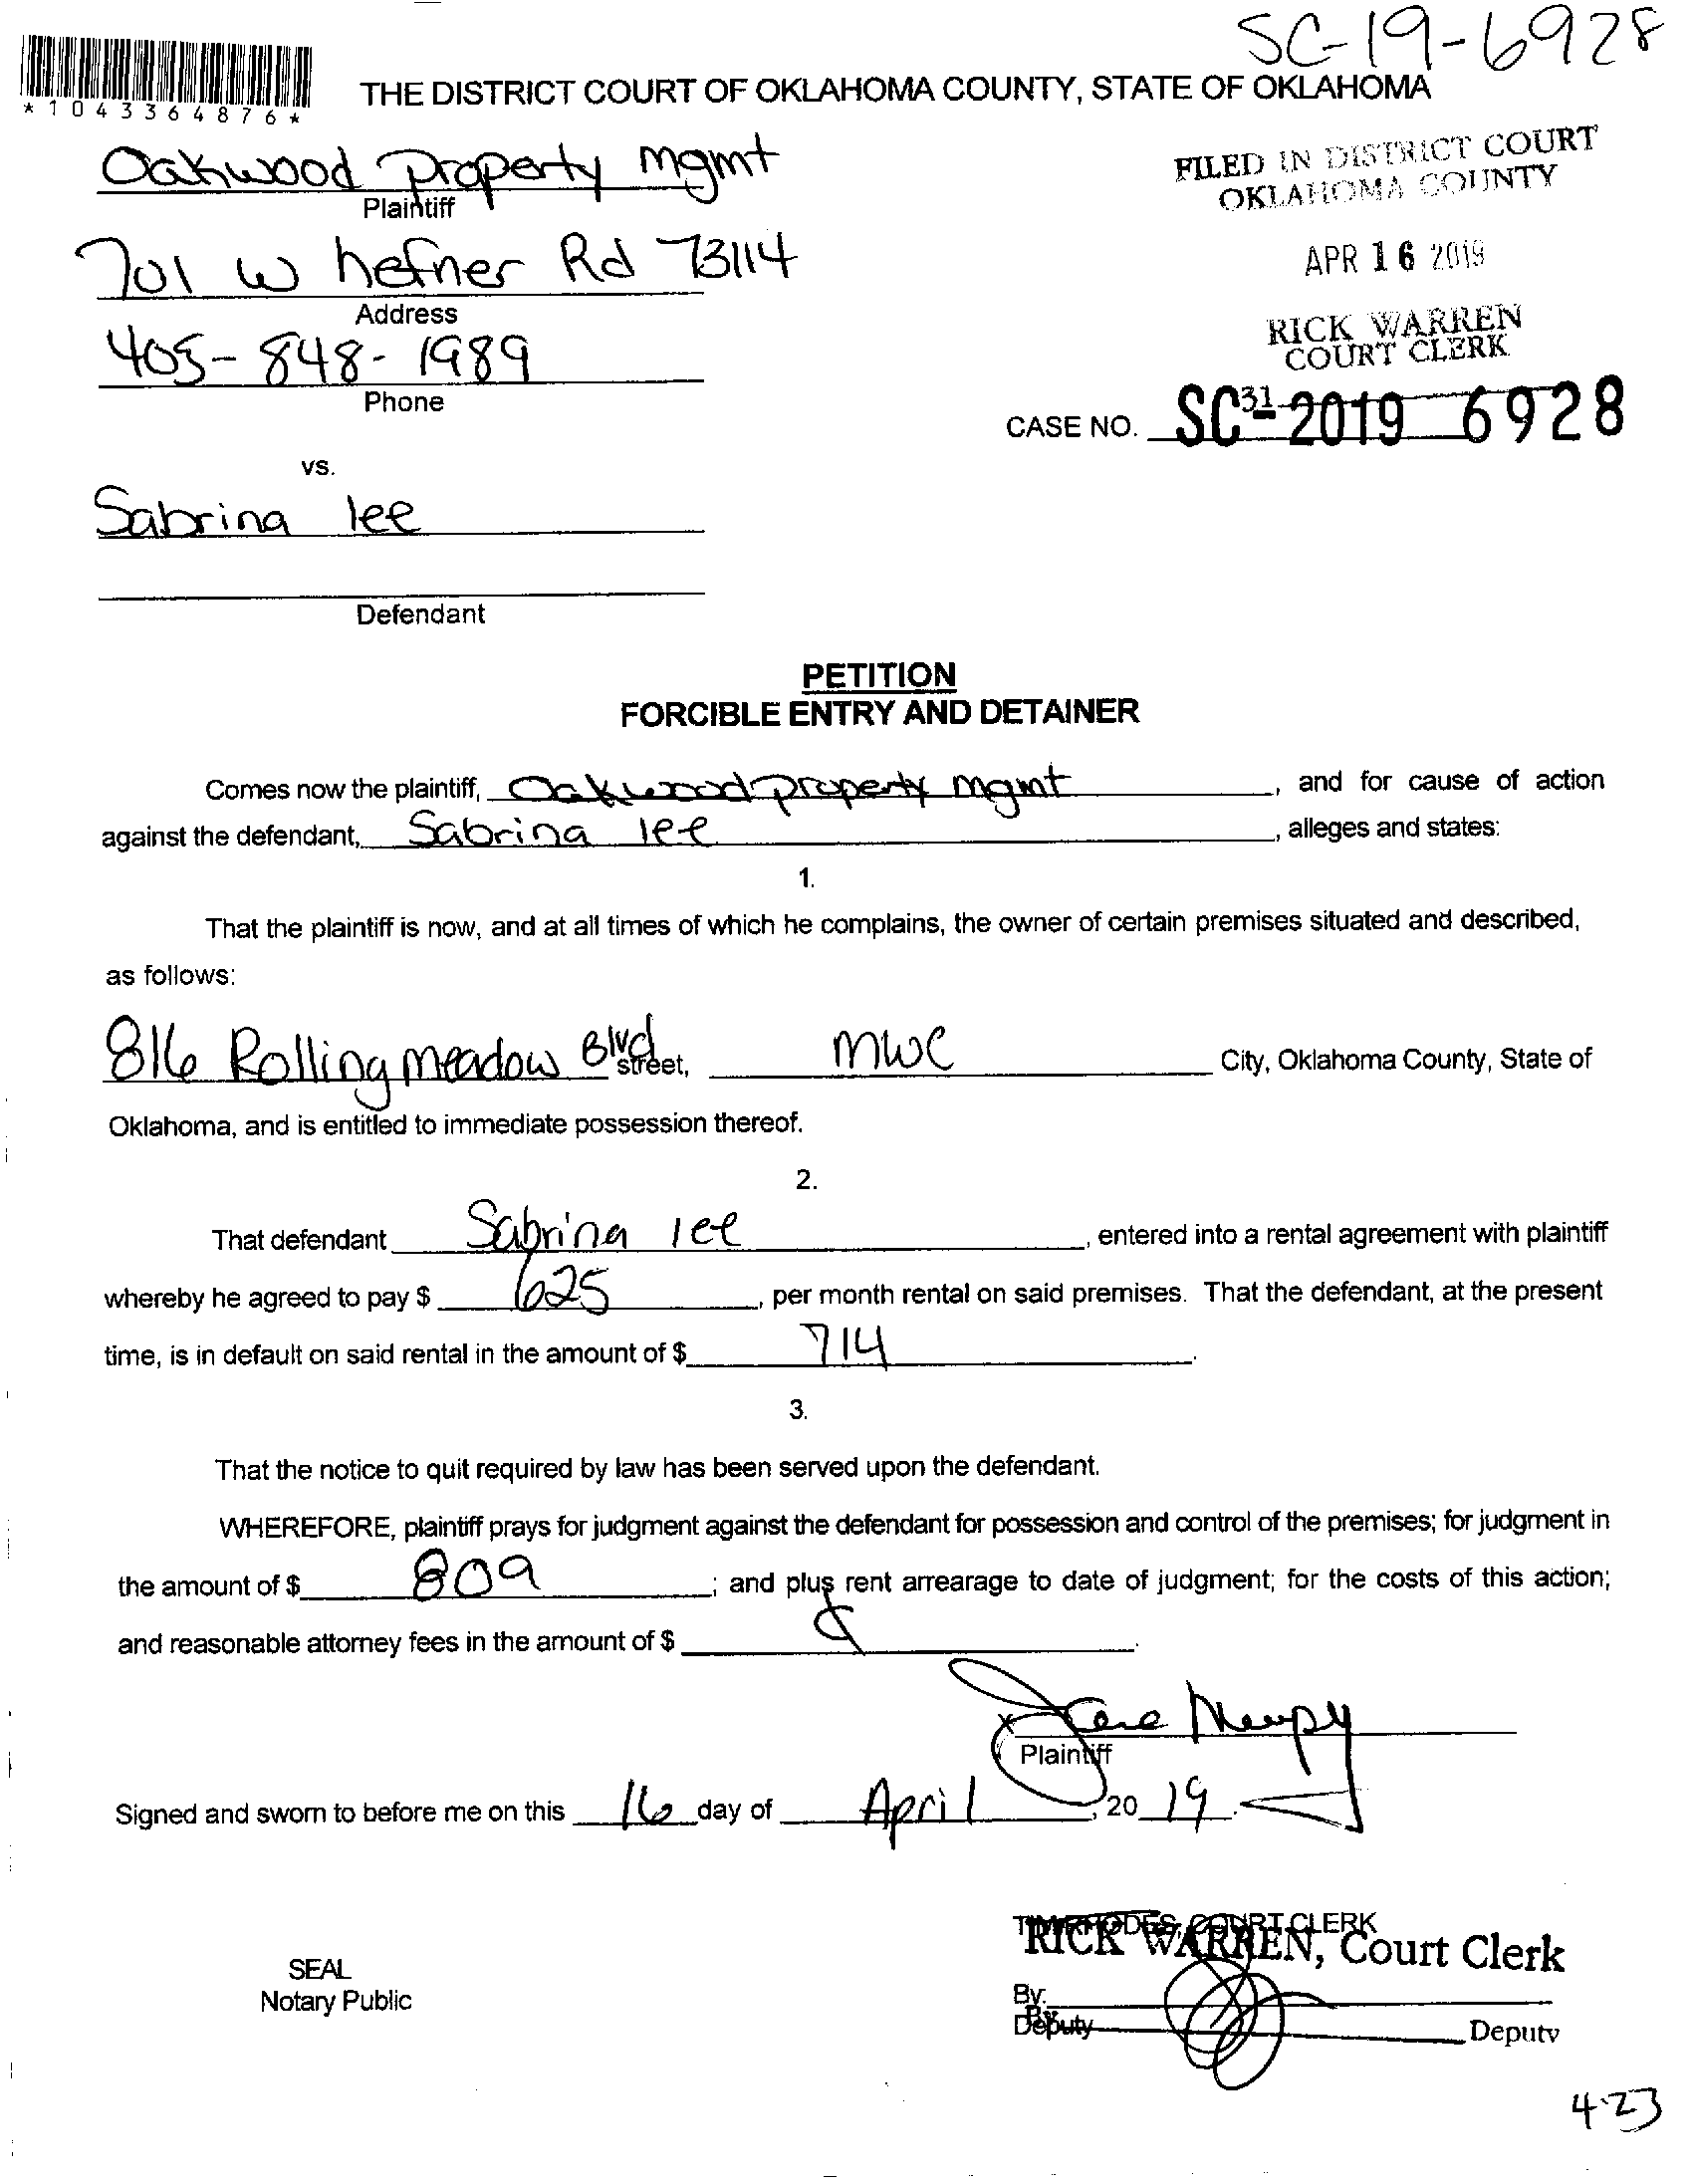 SC-19-6928
*1043364876*
THE DISTRICT COURT OF OKLAHOMA COUNTY, STATE OF OKLAHOMA
Oakwood Property mgmt
Plaintiff
FILED IN DISTRICT COURT
OKLAHOMA COUNTY
701 W hefner Rd 73114
Address
APR 16 2019
405-848-1989
Phone
RICK WARREN
COURT CLERK
31
CASE NO. SC-2019 6928
vs.
Sabrina lee
Defendant
PETITION
FORCIBLE ENTRY AND DETAINER
Comes now the plaintiff, Oakwood property mgmt, and for cause of action
against the defendant, Sabrina lee, alleges and states:
1.
That the plaintiff is now, and at all times of which he complains, the owner of certain premises situated and described,
as follows:
816 Rolling meadow Blvd street, mwc City, Oklahoma County, State of
Oklahoma, and is entitled to immediate possession thereof.
2.
That defendant Sabrina lee, entered into a rental agreement with plaintiff
whereby he agreed to pay $ 625, per month rental on said premises. That the defendant, at the present
time, is in default on said rental in the amount of $ 714.
3.
That the notice to quit required by law has been served upon the defendant.
WHEREFORE, plaintiff prays for judgment against the defendant for possession and control of the premises; for judgment in
the amount of $ 809; and plus rent arrearage to date of judgment; for the costs of this action;
and reasonable attorney fees in the amount of $
Plaintiff
Signed and sworn to before me on this 16 day of April, 20 19.
TIM RHODES, COURT CLERK
RICK WARREN, Court Clerk
SEAL
Notary Public
By:
Deputy
By Deputy
4-23